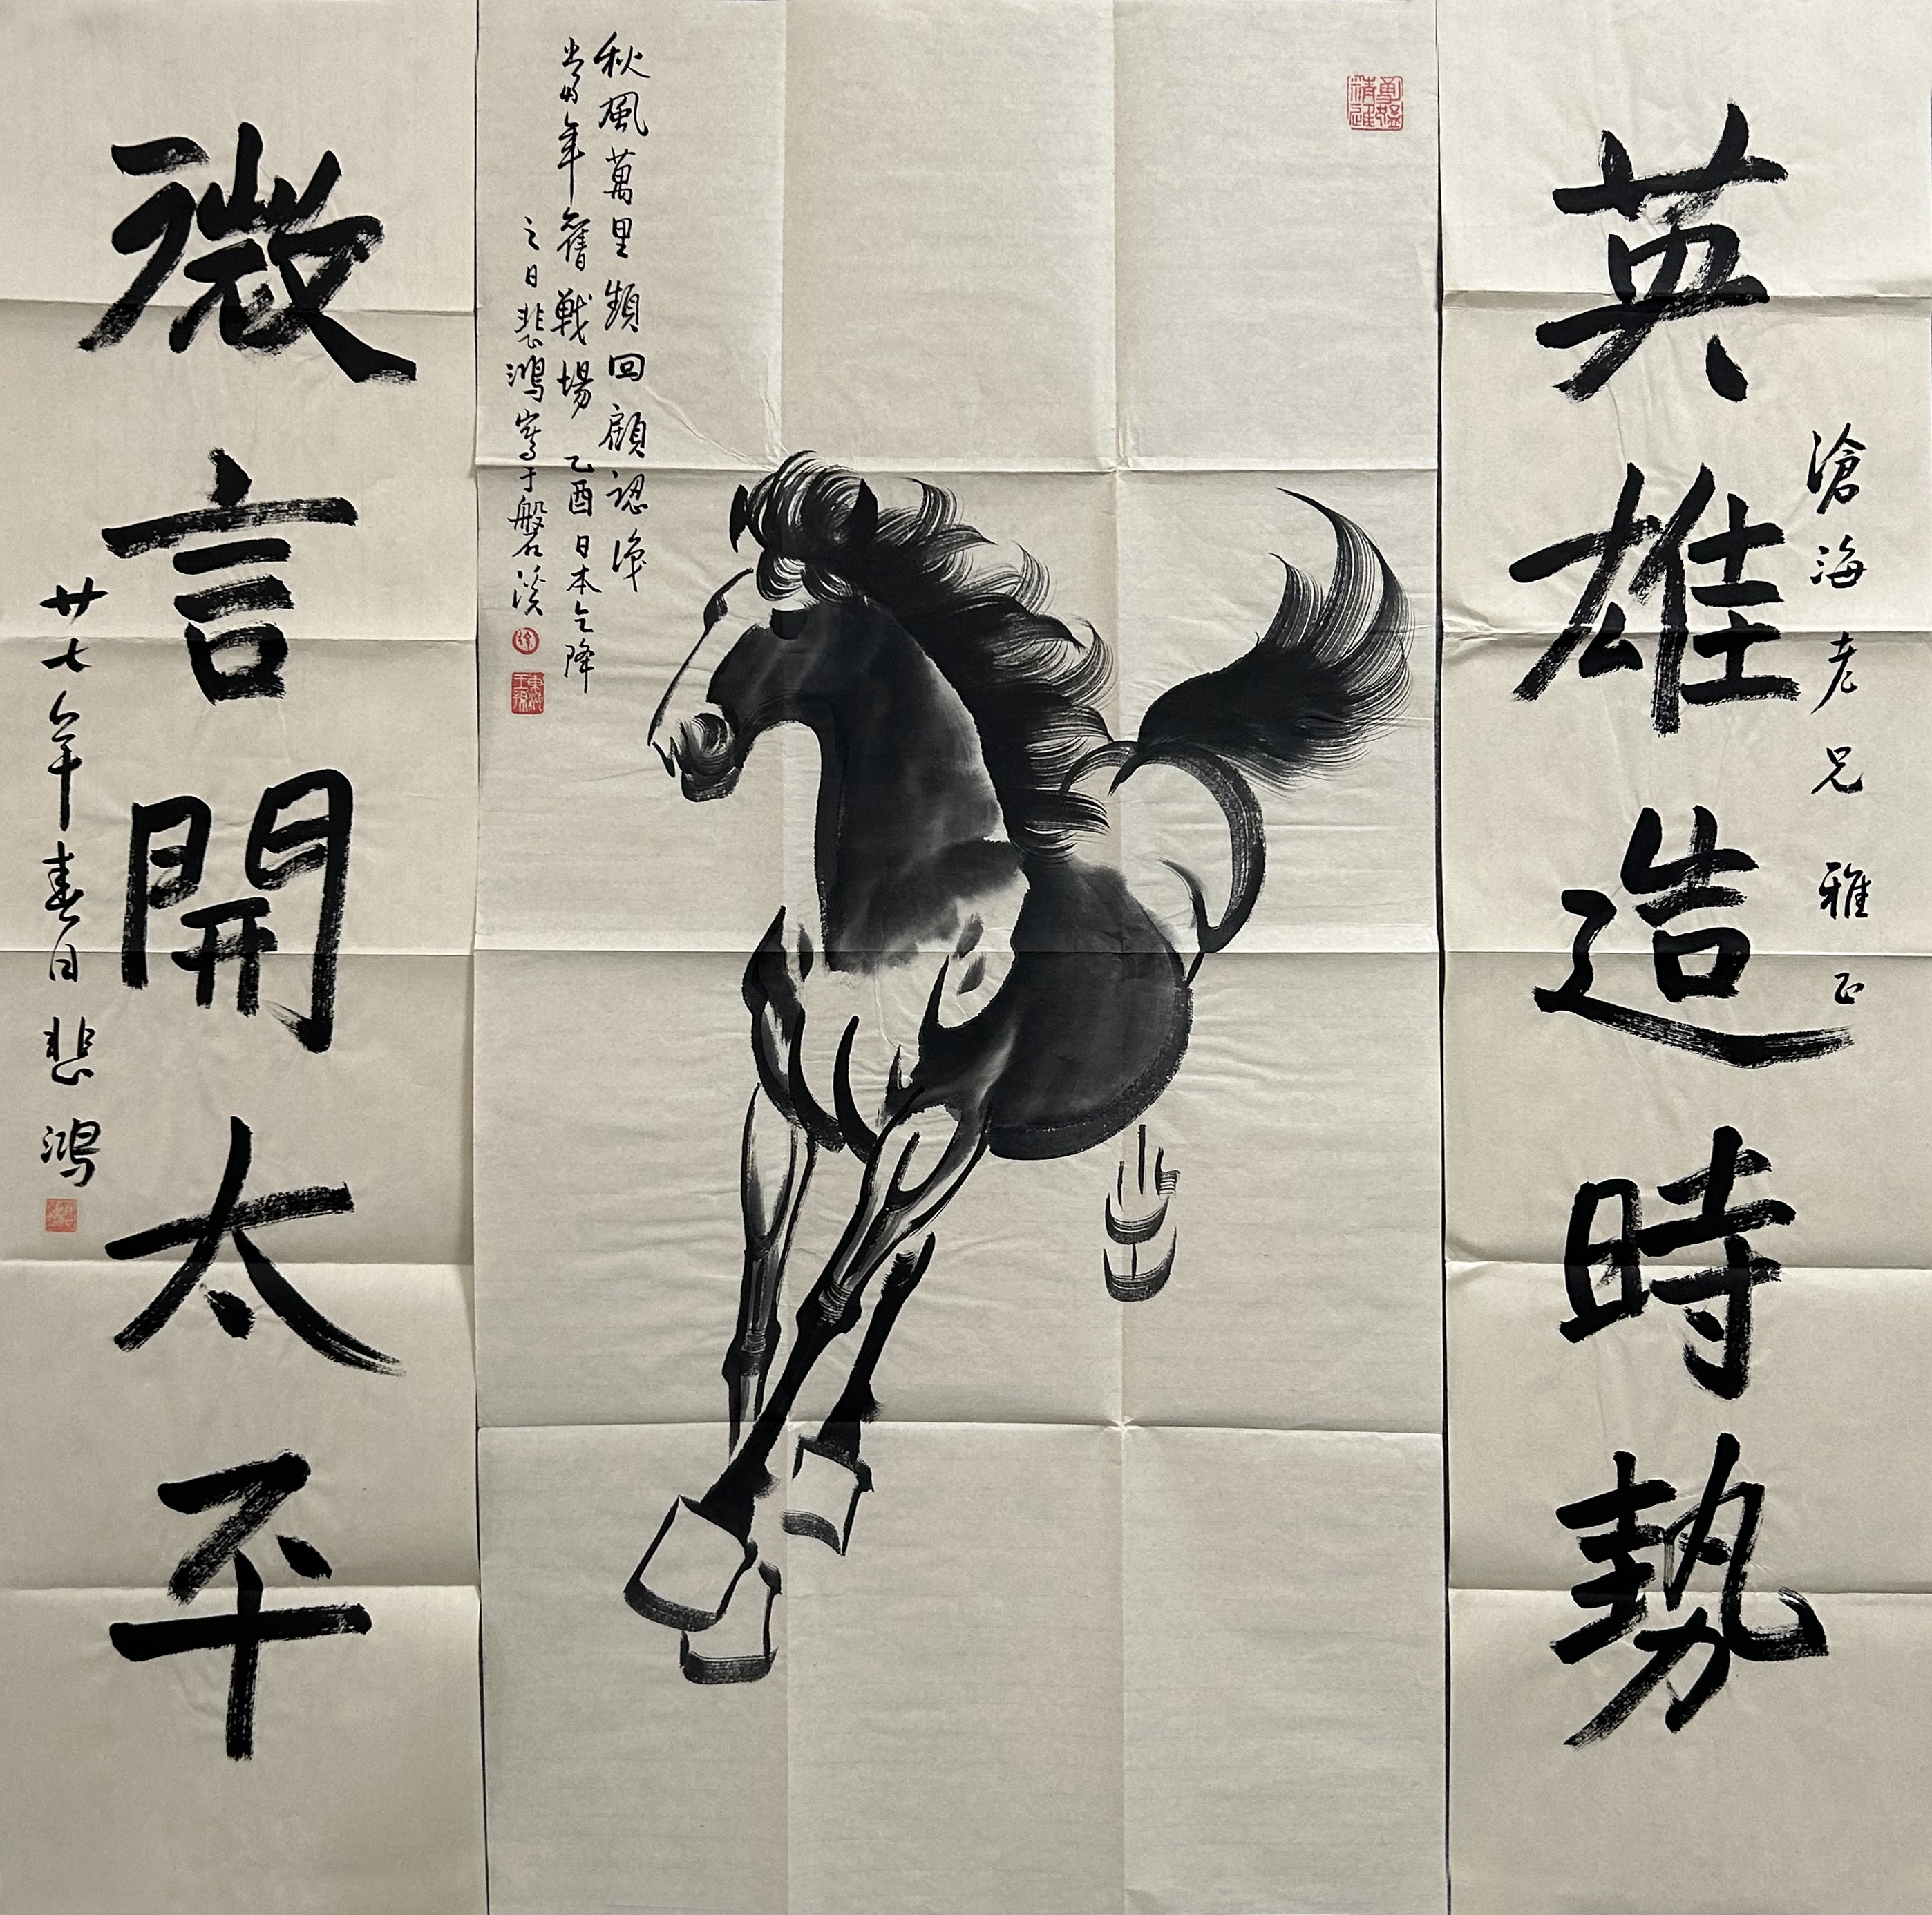 英雄造時勢
滄海老兄雅正
勇猛精進
秋風萬里頻回顧認得
當年舊戰場 乙酉日本乞降
之日悲鴻寫于磐溪
徐
東海王孫
微言開太平
廿七年春日悲鴻